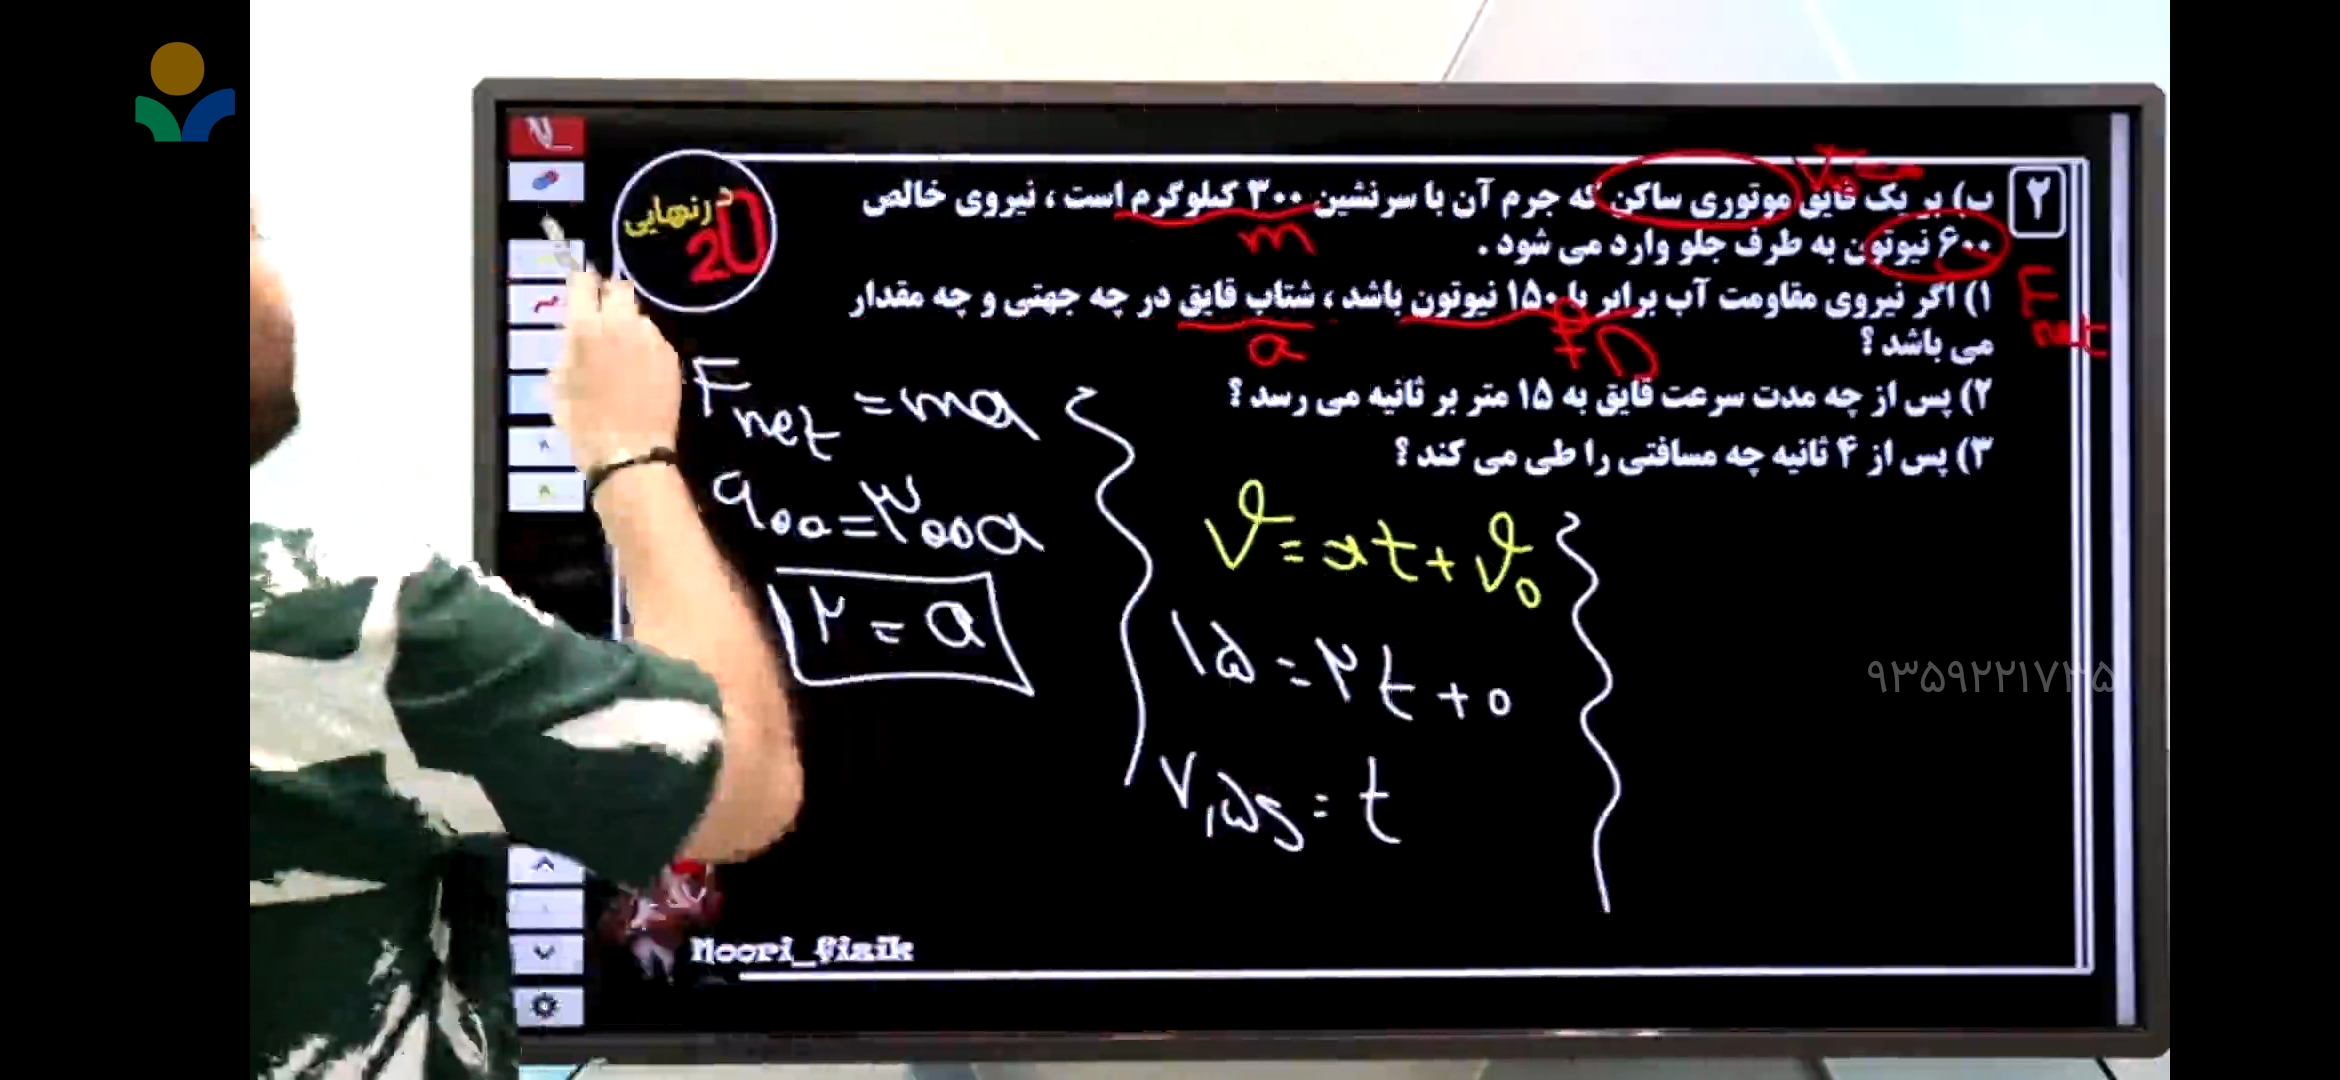 ۲
ب) بر یک قایق موتوری ساکن که جرم آن با سرنشین ۳۰۰ کیلوگرم است ، نیروی خالص
۶۰۰ نیوتون به طرف جلو وارد می شود .
۱) اگر نیروی مقاومت آب برابر با ۱۵۰ نیوتون باشد ، شتاب قایق در چه جهتی و چه مقدار
می باشد ؟
۲) پس از چه مدت سرعت قایق به ۱۵ متر بر ثانیه می رسد ؟
۳) پس از ۴ ثانیه چه مسافتی را طی می کند ؟
درنهایی
20
m
F net
a
f D
F net = ma
۶۰۰ = ۳۰۰a
۲ = a
v = at + v0
۱۵ = ۲t + ۰
۷,۵s = t
۹۳۵۹۲۲۱۷۲۵
Noori_fizik